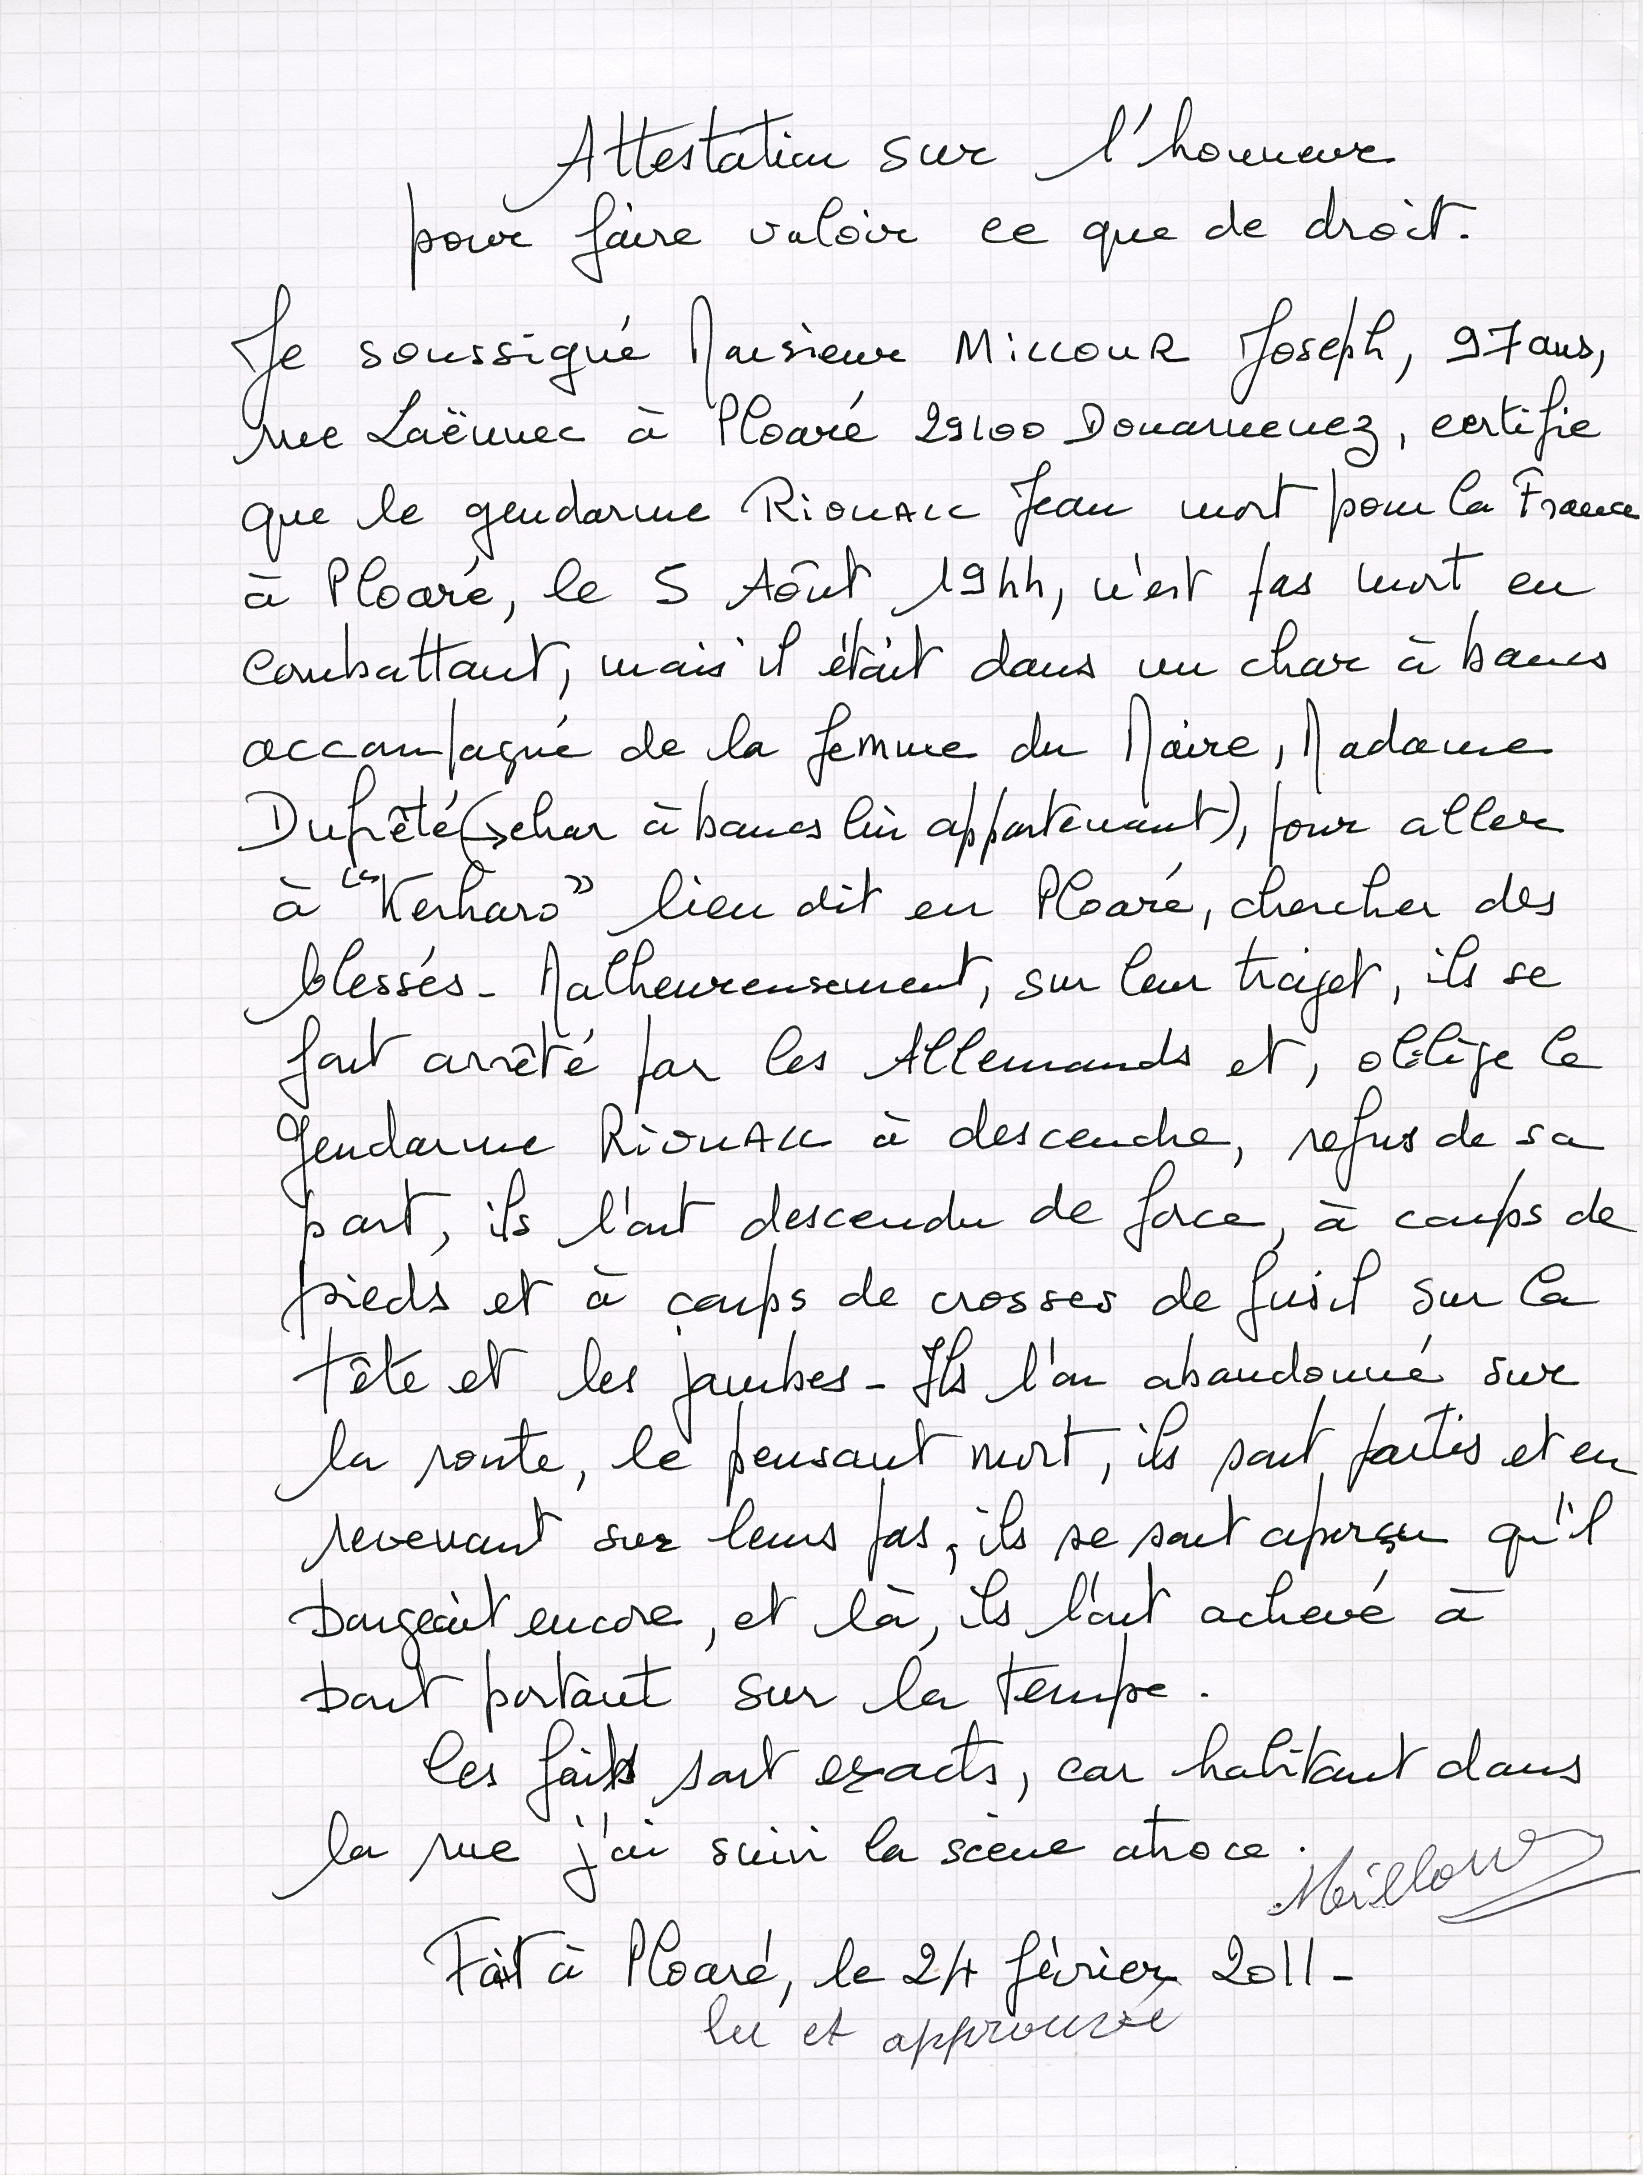 Attestation sur l'honneur
pour faire valoir ce que de droit.
Je soussigné Monsieur MILLOUR Joseph, 97 ans,
rue Laënnec à Ploaré 29100 Douarnenez, certifie
que le gendarme RIOUALL Jean mort pour la France
à Ploaré, le 5 Aôut 1944, n'est pas mort en
combattant, mais il était dans un char à bancs
accompagné de la femme du Maire, Madame
Duprêté (char à bancs lui appartenant), pour aller
à "Kerharo" lieu dit en Ploaré, chercher des
blessés - Malheureusement, sur leur trajet, ils se
font arrêté par les Allemands et, oblige le
Gendarme RIOUALL à descendre, refus de sa
part, ils l'ont descendu de force, à coups de
pieds et à coups de crosses de fusil sur la
tête et les jambes - Ils l'on abandonné sur
la route, le pensant mort, ils sont partis et en
revenant sur leurs pas, ils se sont aperçu qu'il
bougeait encore, et là, ils l'ont achevé à
bout portant sur la tempe.
les faits sont exacts, car habitant dans
la rue j'ai suivi la scène atroce.
Millour
Fait à Ploaré, le 24 février 2011 -
lu et approuvé